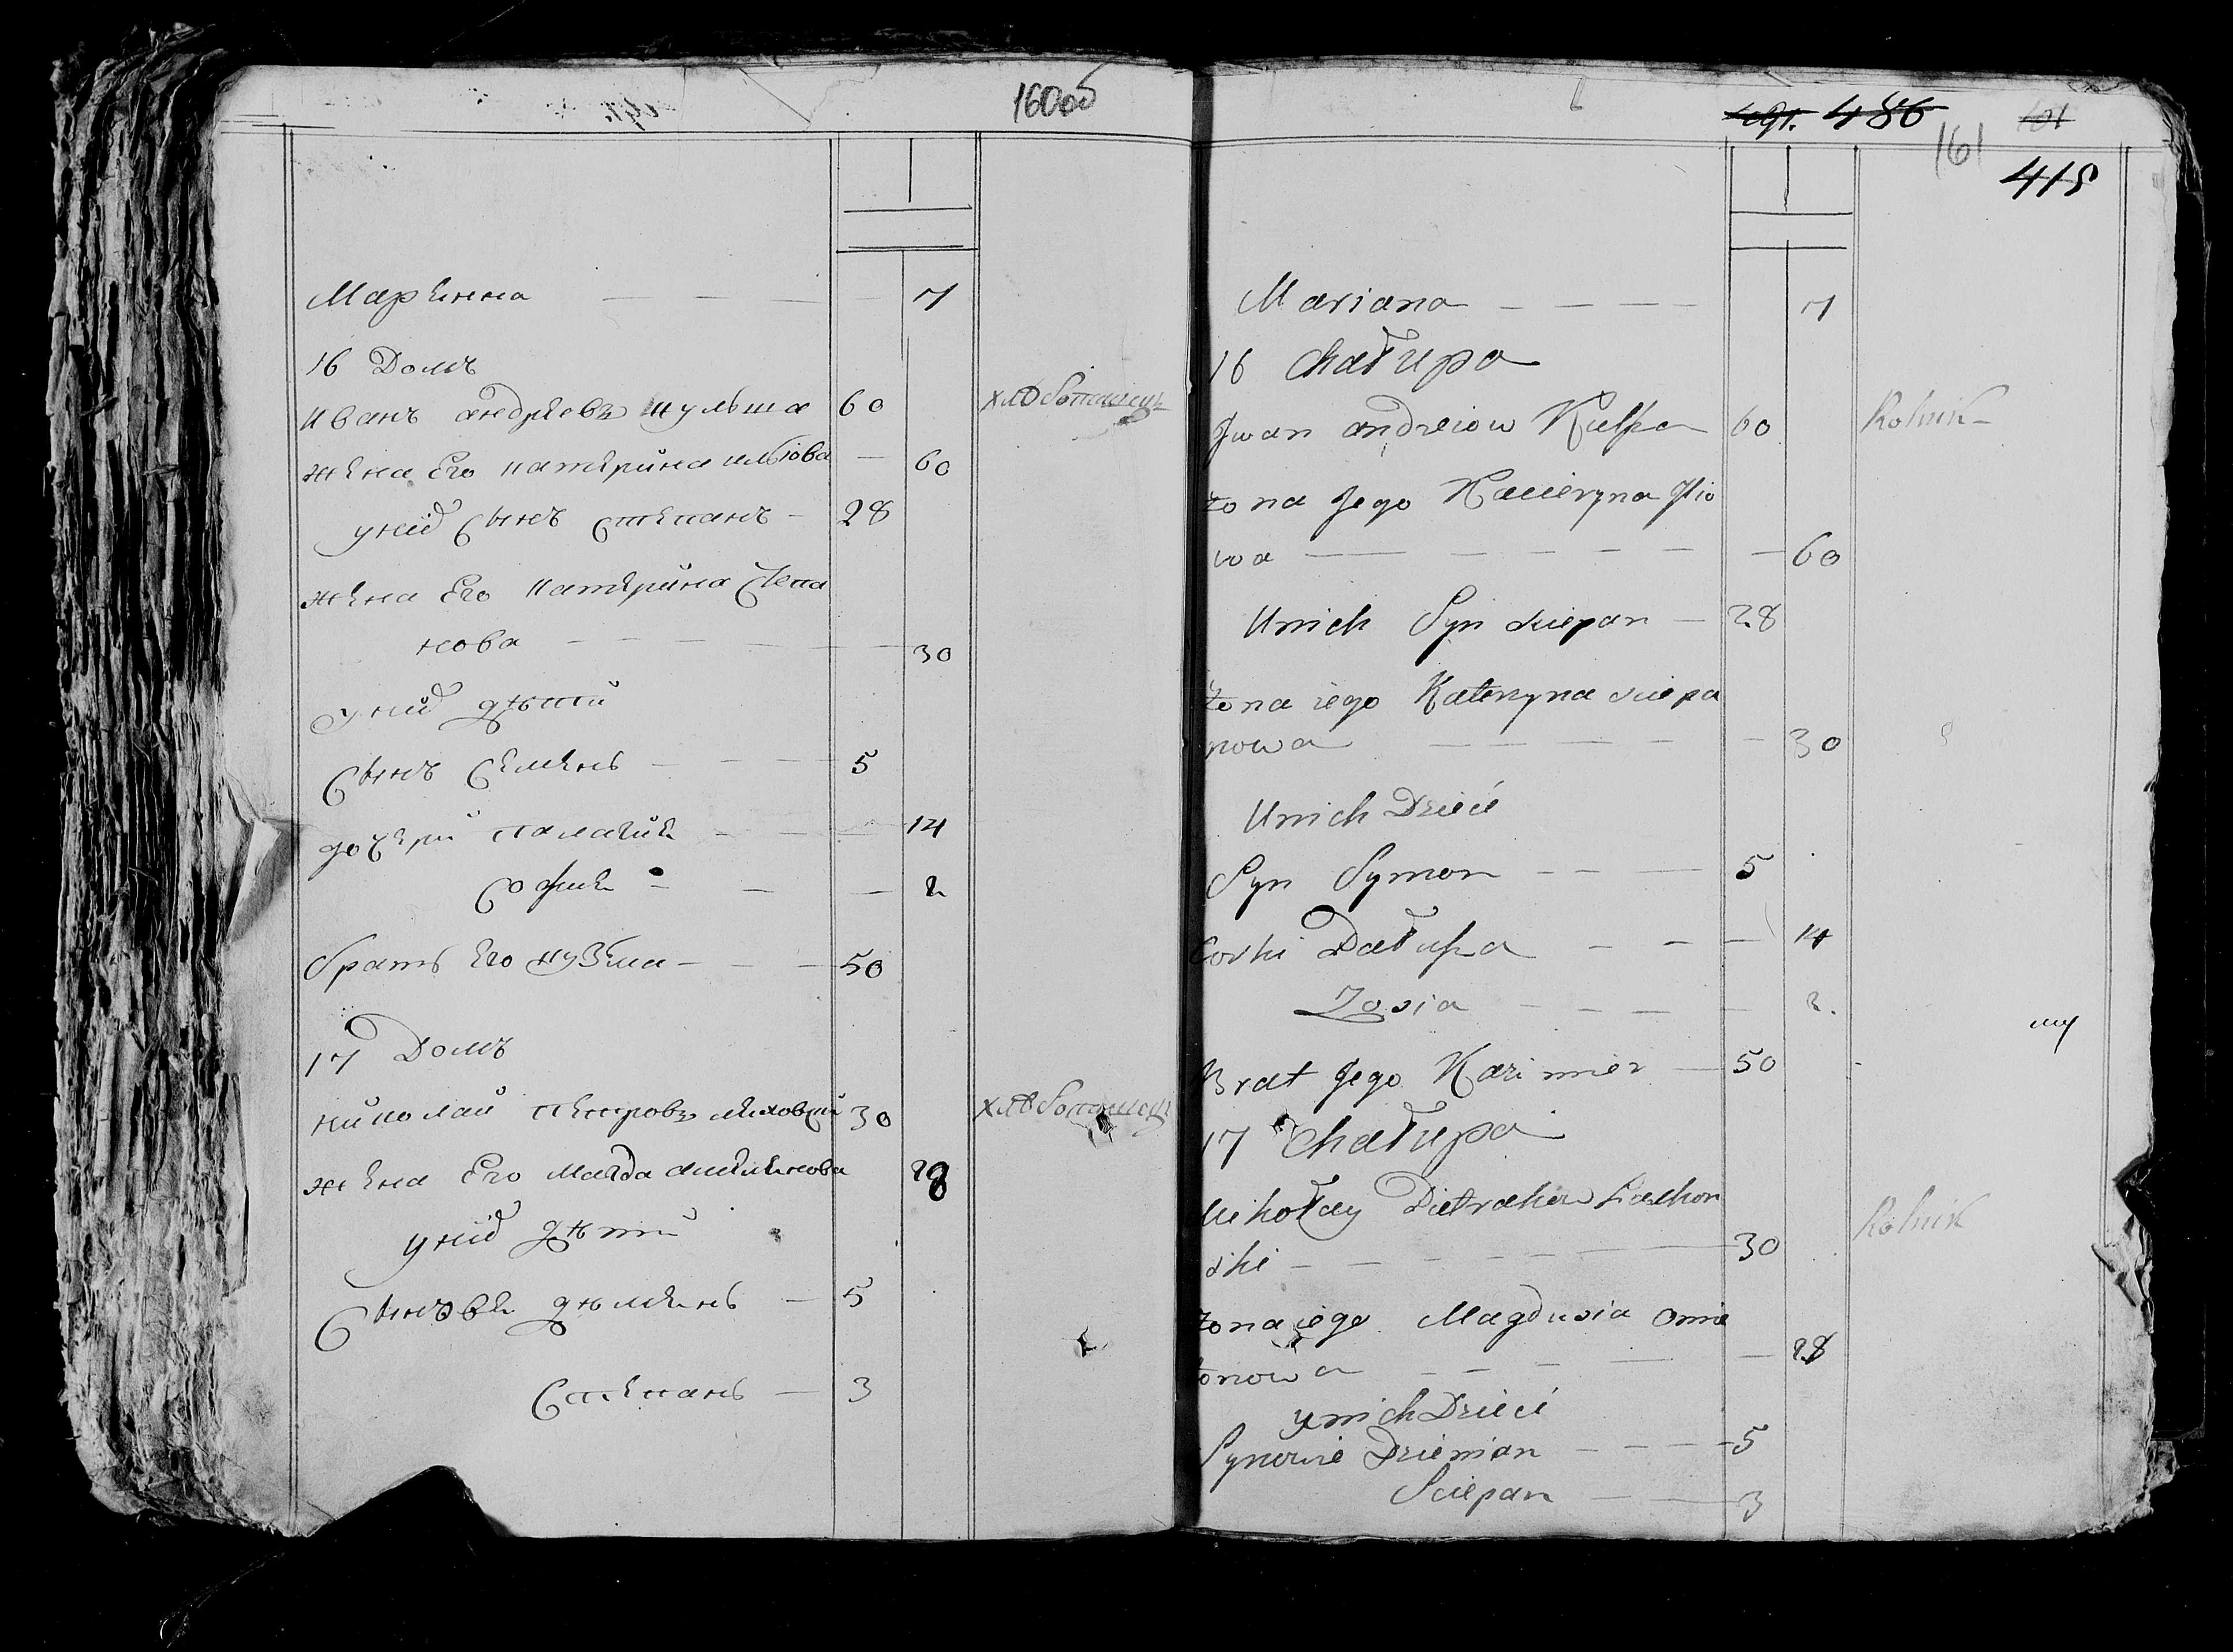 160об
Марѣнна — — — — 7
16 Домъ
Иванъ андрѣевъ кульша 60 хлебопашецъ
жена Его катерина илiова — 60
у них Сынъ степанъ — 28
жена Его катерина Степа
нова — — — — 30
У них дѣти
Сынъ Семенъ — — — 5
дочери палагия — — — 14
София — — — 2
братъ Его кузьма — — — 50
17 Домъ
николай петровъ ляховский 30 хлебопашецъ
жена Его Магда 28
у них дѣти
Сыновья дѣменъ — 5
Степанъ — 3
486 101
161
415
Mariana — — — — 7
16 Chałupa
Jwan andreiow Kulsza 60 Rolnik
żona Jego Kacieryna Jlio
wa — — — — — — 60
Unich Syn sciepan — 28
żona iego Kateryna sciepa
nowa — — — — — 30
Unich Dzieci
Syn Symon — — — 5
Corki — — — 14
Zosia — — — — 2.
Brat Jego Kazimier — 50
17 Chałupa
Mikołay Lachow
ski — — — — — 30 Rolnik
żona iego Magdusia Omie
— — — — 28
ynich Dzieci
Synowie Dziemian — — — 5
Sciepan — — 3